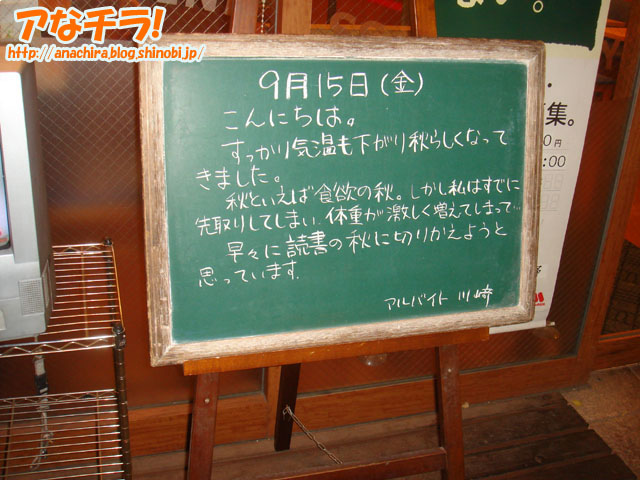 アなチラ!
http://anachira.blog.shinobi.jp/
9月15日(金)
こんにちは。
すっかり気温も下がり秋らしくなって
きました。
秋といえば食欲の秋。しかし私はすでに
先取りしてしまい、体重が激しく増えてしまって…
早々に読書の秋に切りかえようと
思っています。
アルバイト 川崎
集。
円
:00